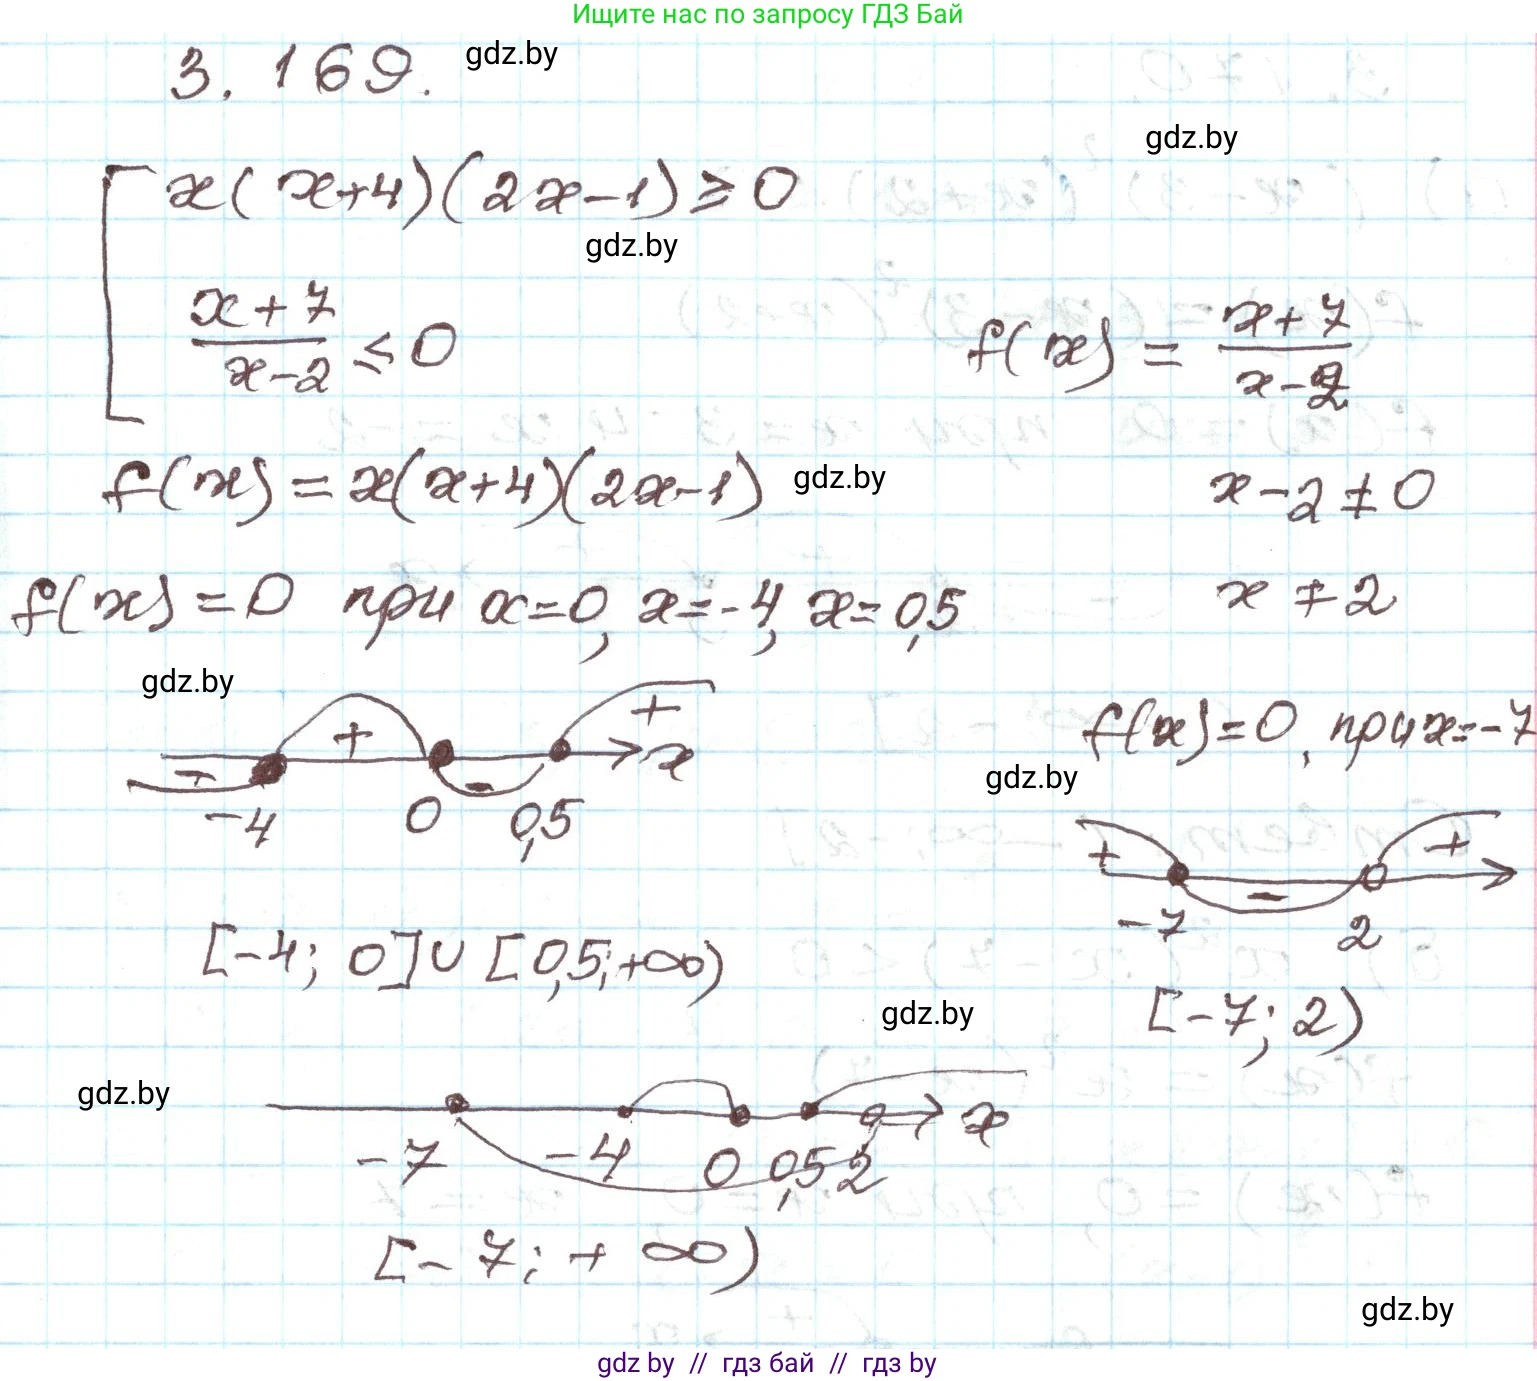 Ищите нас по запросу ГДЗ Бай
3.169.
gdz.by
gdz.by
x(x+4)(2x-1)≥0
gdz.by
x+7
x-2
≤0
f(x) = x+7
x-2
f(x) = x(x+4)(2x-1)
gdz.by
x-2≠0
f(x)=0 при x=0, x=-4, x=0,5
x≠2
gdz.by
f(x)=0, при x=-7
gdz.by
- + - + x
-4 0 0,5
+ - +
-7 2
[-4; 0]∪[0,5;+∞)
[-7; 2)
gdz.by
gdz.by
x
-7 -4 0 0,5 2
[-7; +∞)
gdz.by
gdz by // гдз бай // гдз by